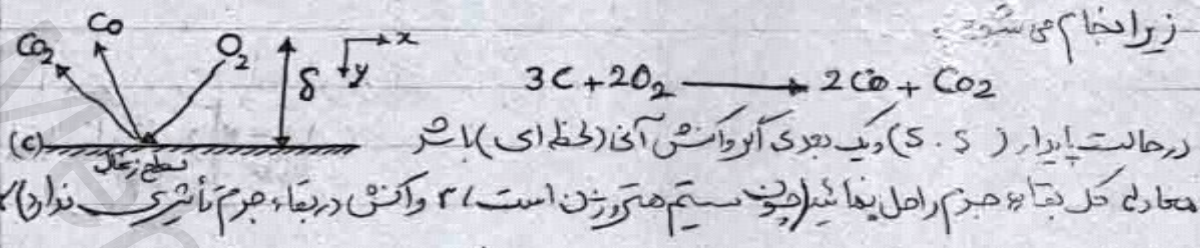 زیر انجام می شود.
CO₂ CO O₂ δ x y
3C + 2O₂ → 2CO + CO₂
(C) سطح زغال
در حالت پایدار (S.S) و یک بعدی اگر واکنش آنی (لحظه ای) باشد
معادله کل بقاء جرم را حل بنمائید (چون سیستم هتروژن است، r واکنش در بقاء جرم تأثیری ندارد)